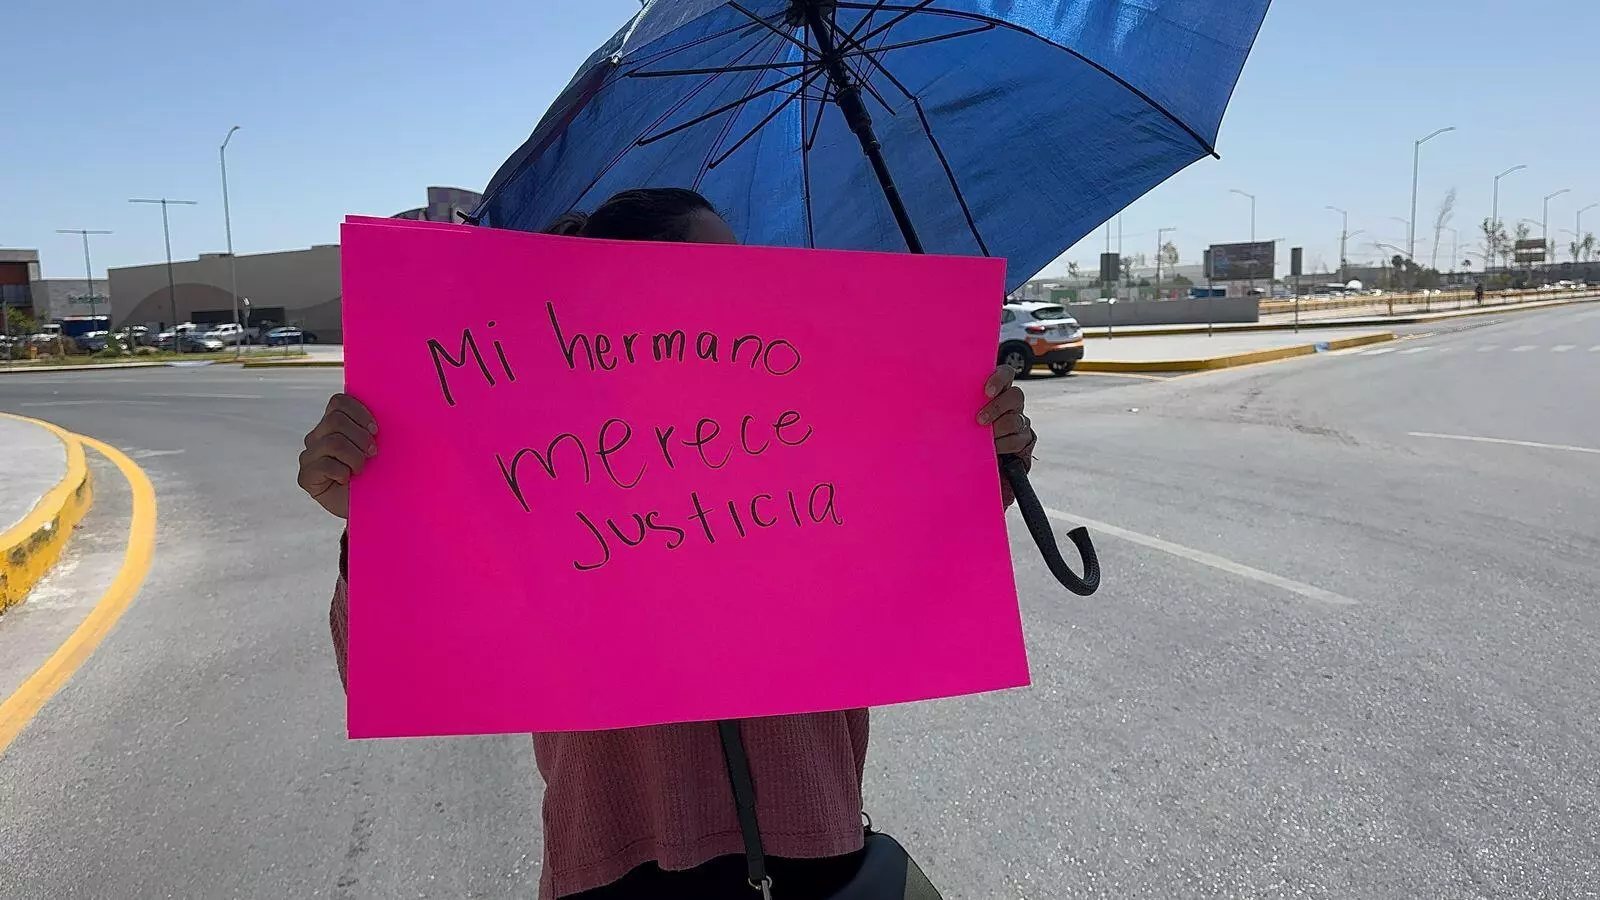 Mi hermano
merece
justicia